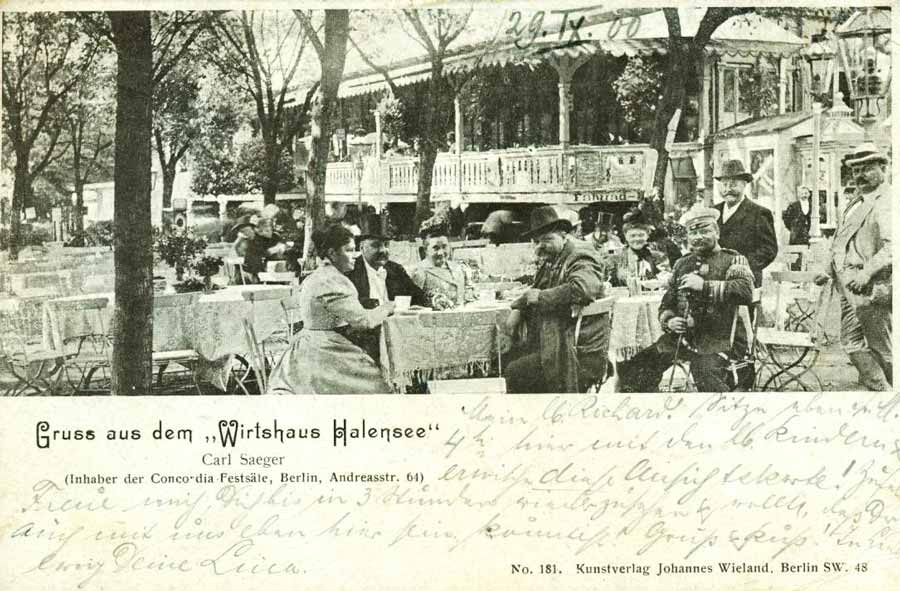 29. IX. 00
Gruss aus dem „Wirtshaus Halensee“
Carl Saeger
(Inhaber der Concordia-Festsäle, Berlin, Andreasstr. 64)
Mein lb. Richard! Sitze eben
4 hier mit den lb. Kindern
erwische diese Ansichtskarte!
Freue mich, Dich bis in 3 Stunden wiederzusehen & wollte, daß Du
auch mit uns eben hier sein könntest! Gruß & Kuß!
ewig Deine Luca.
No. 181. Kunstverlag Johannes Wieland, Berlin SW. 48